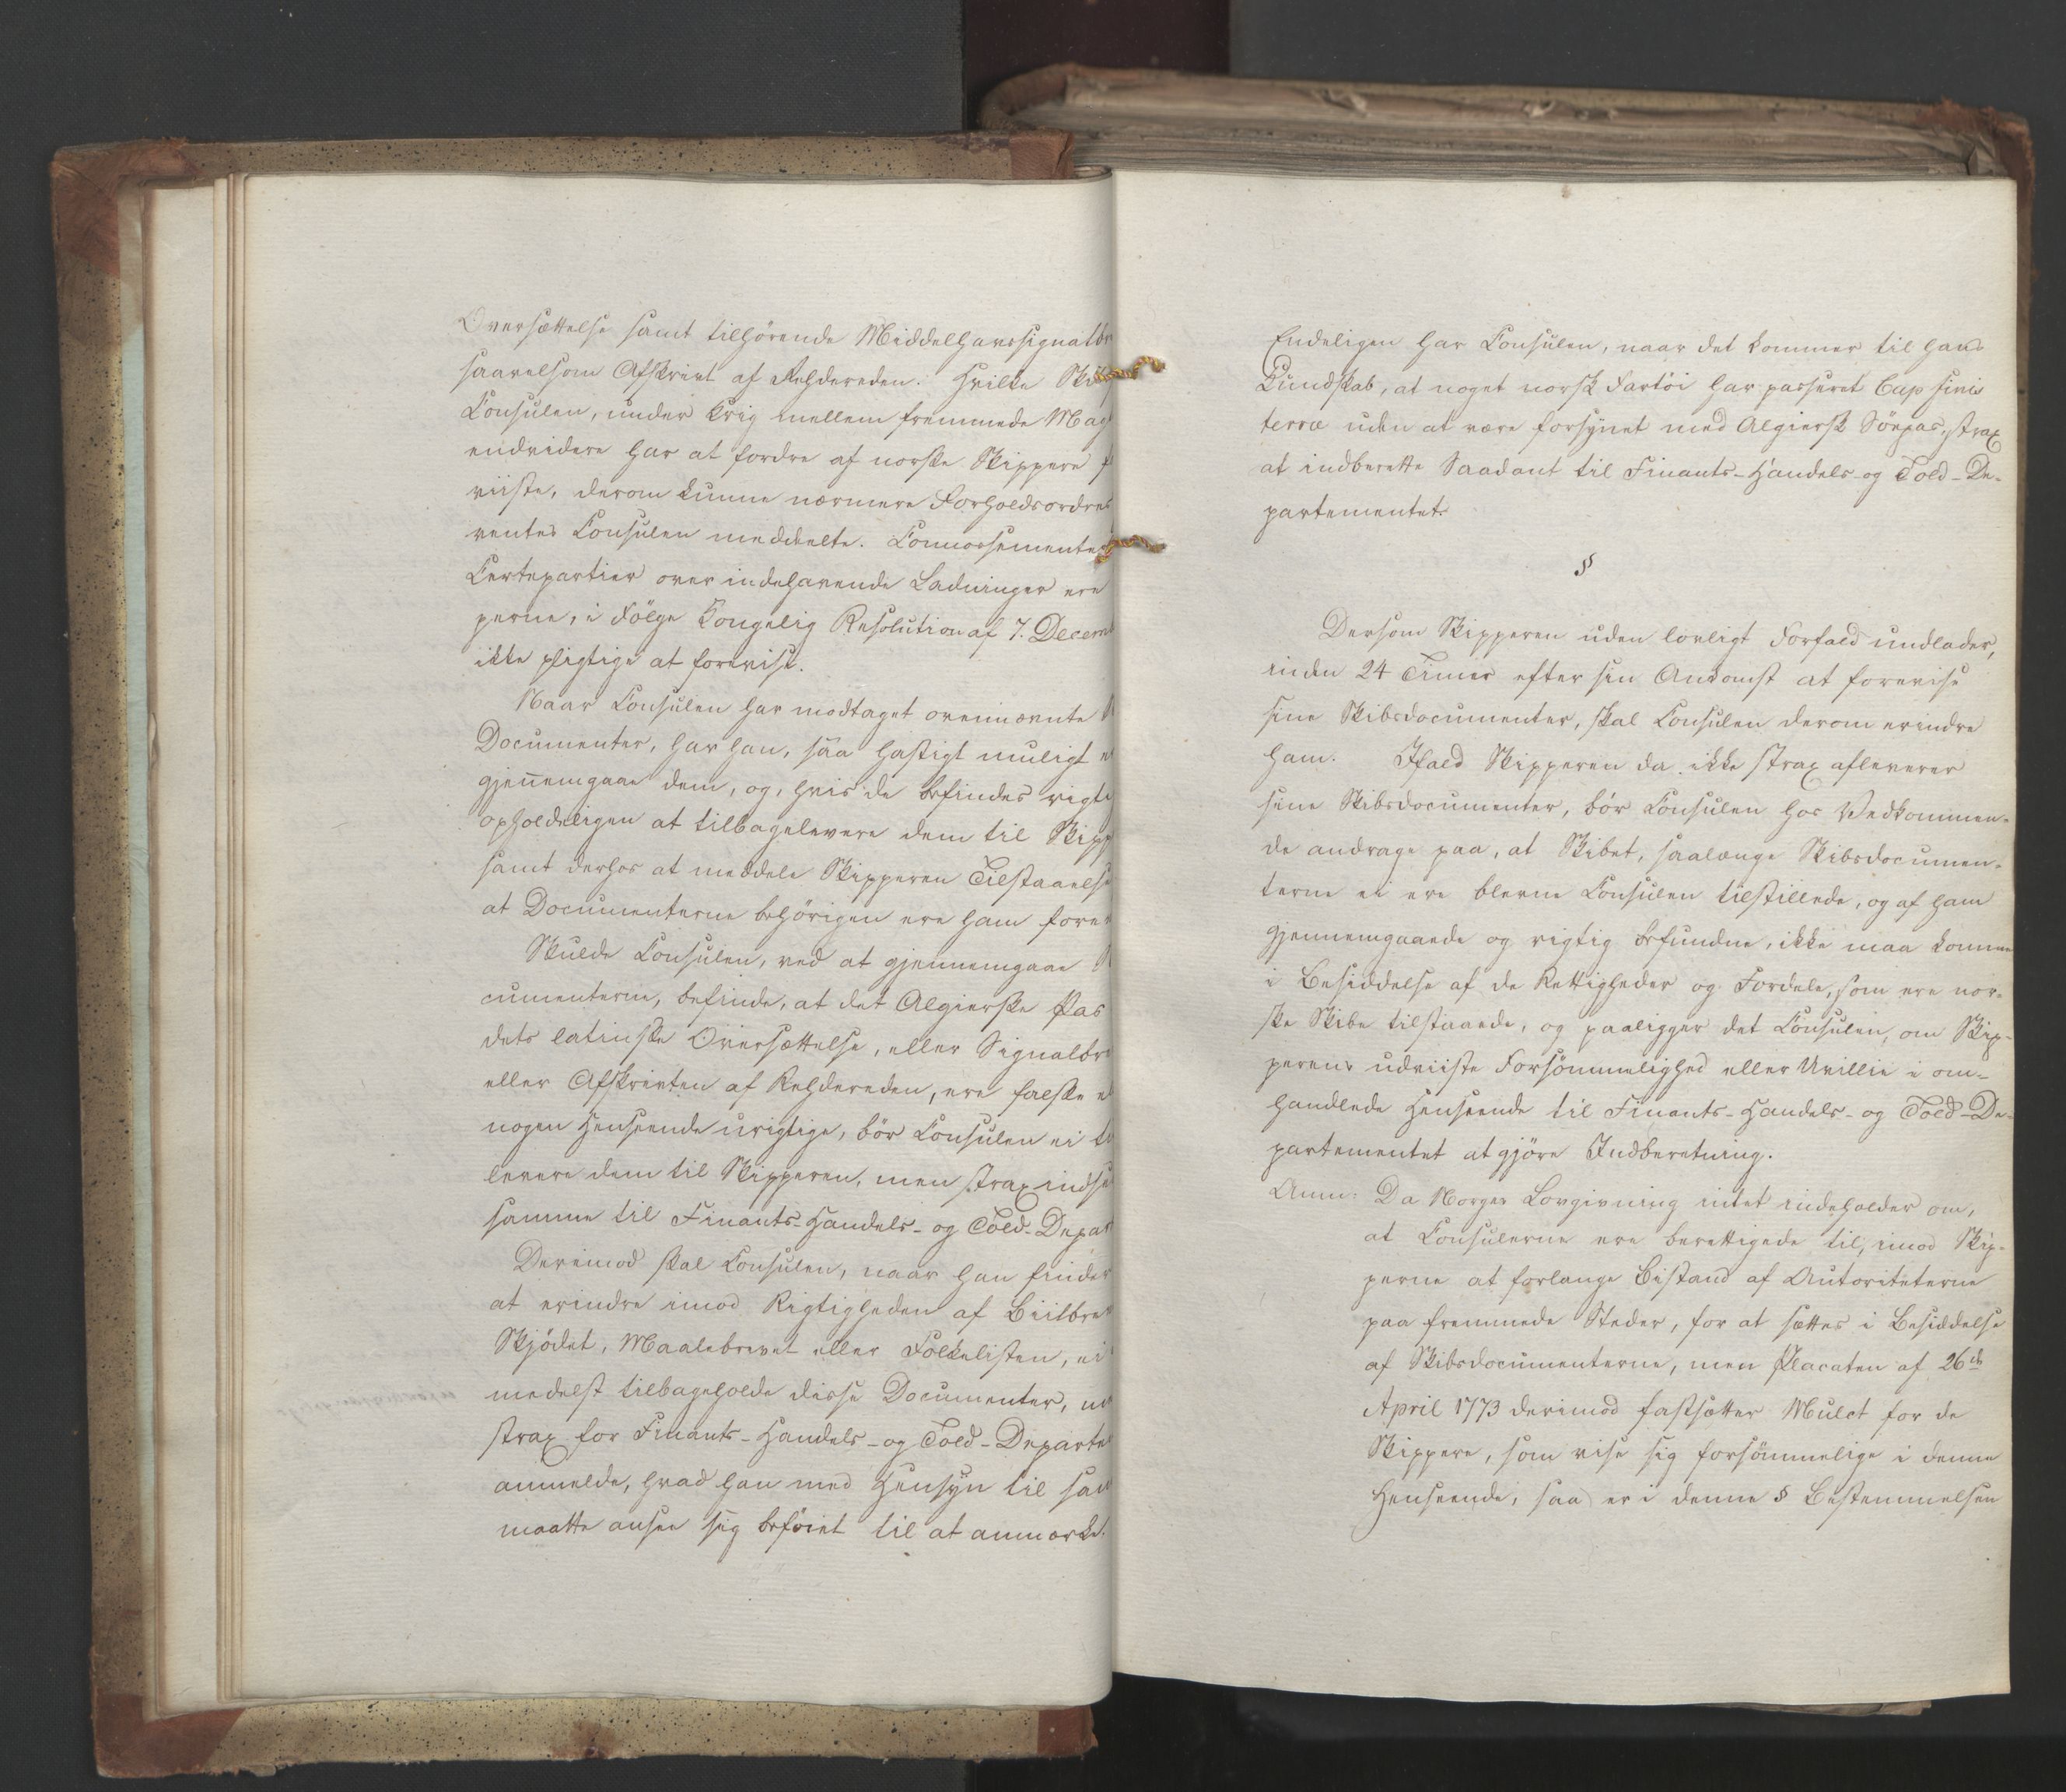 Oversættelse samt tilhörende Middelhavssignalbr
saavelsom Afskrivt af Rehdereden. Hvilke Ski
Consulen, under Krig mellem fremmede Mag
endvidere har at fordre af norske Skippere f
viiste, derom kunne nærmere Forholdsordres
ventes Consulen meddeelte. Connossementer
Certepartier over indehavende Ladninger ere
perne, i Fölge Kongelig Resolution af 7. Decemb
ikke pligtige at forevise.
Naar Consulen har modtaget ovennævnte
Documenter, har han, saa hastigt muligt e
gjennemgaae dem, og, hvis de befindes rigti
opholdeligen at tilbagelevere dem til Skipp
samt derhos at meddele Skipperen Tilstaaelse
at Documenterne behörigen ere ham forev
Skulde Consulen, ved at gjennemgaae
cumenterne, befinde, at det Algierske Pas
dets latinske Oversættelse, eller Signalbre
eller Afskrivten af Rehdereden, ere falske e
nogen Henseende urigtige, bör Consulen ei ti
levere dem til Skipperen, men strax indse
samme til Finants-Handels- og Told-Depar
Derimod skal Consulen, naar han finder
at erindre imod Rigtigheden af Biilbre
Skjödet, Maalebrevet eller Folkelisten, ei
medelst tilbageholde disse Documenter, m
strax for Finants-Handels-og Told-Departe
anmelde, hvad han med Hensyn til sam
maatte ansee sig beföiet til at anmærke.
Endeligen har Consulen, naar det kommer til hans
Kundskab, at noget norsk Fartöi har passeret Cap finis
terræ uden at være forsynet med Algiersk Söepas, strax
at indberette Saadant til Finants-Handels-og Told-De-
partementet.
§
Dersom Skipperen uden lovligt Forfald undlader,
inden 24 Timer efter sin Ankomst at forevise
sine Skibsdocumenter, skal Consulen derom erindre
ham. Ifald Skipperen da ikke strax afleverer
sine Skibsdocumenter, bör Consulen hos Vedkommen-
de andrage paa, at Skibet, saalænge Skibsdocumen-
terne ei ere blevne Consulen tilstillede, og af ham
gjennemgaaede og rigtig befundne, ikke maa komme
i Besiddelse af de Rettigheder og Fordele, som ere nor-
ske Skibe tilstaaede, og paaligger det Consulen, om Skip-
perens udviiste Forsömmelighed eller Uvillie i om-
handlede Henseende til Finants-Handels- og Told-De-
partementet at gjöre Indberetning.
Anm: Da Norges Lovgivning intet indeholder om,
at Consulerne ere berettigede til, imod Skip-
perne at forlange Bistand af Autoriteterne
paa fremmede Steder, for at sættes i Besiddelse
af Skibsdocumenterne, men Placaten af 26de
April 1773 derimod fastsætter Mulct for de
Skippere, som vise sig forsömmelige i denne
Henseende, saa er i denne § Bestemmelsen